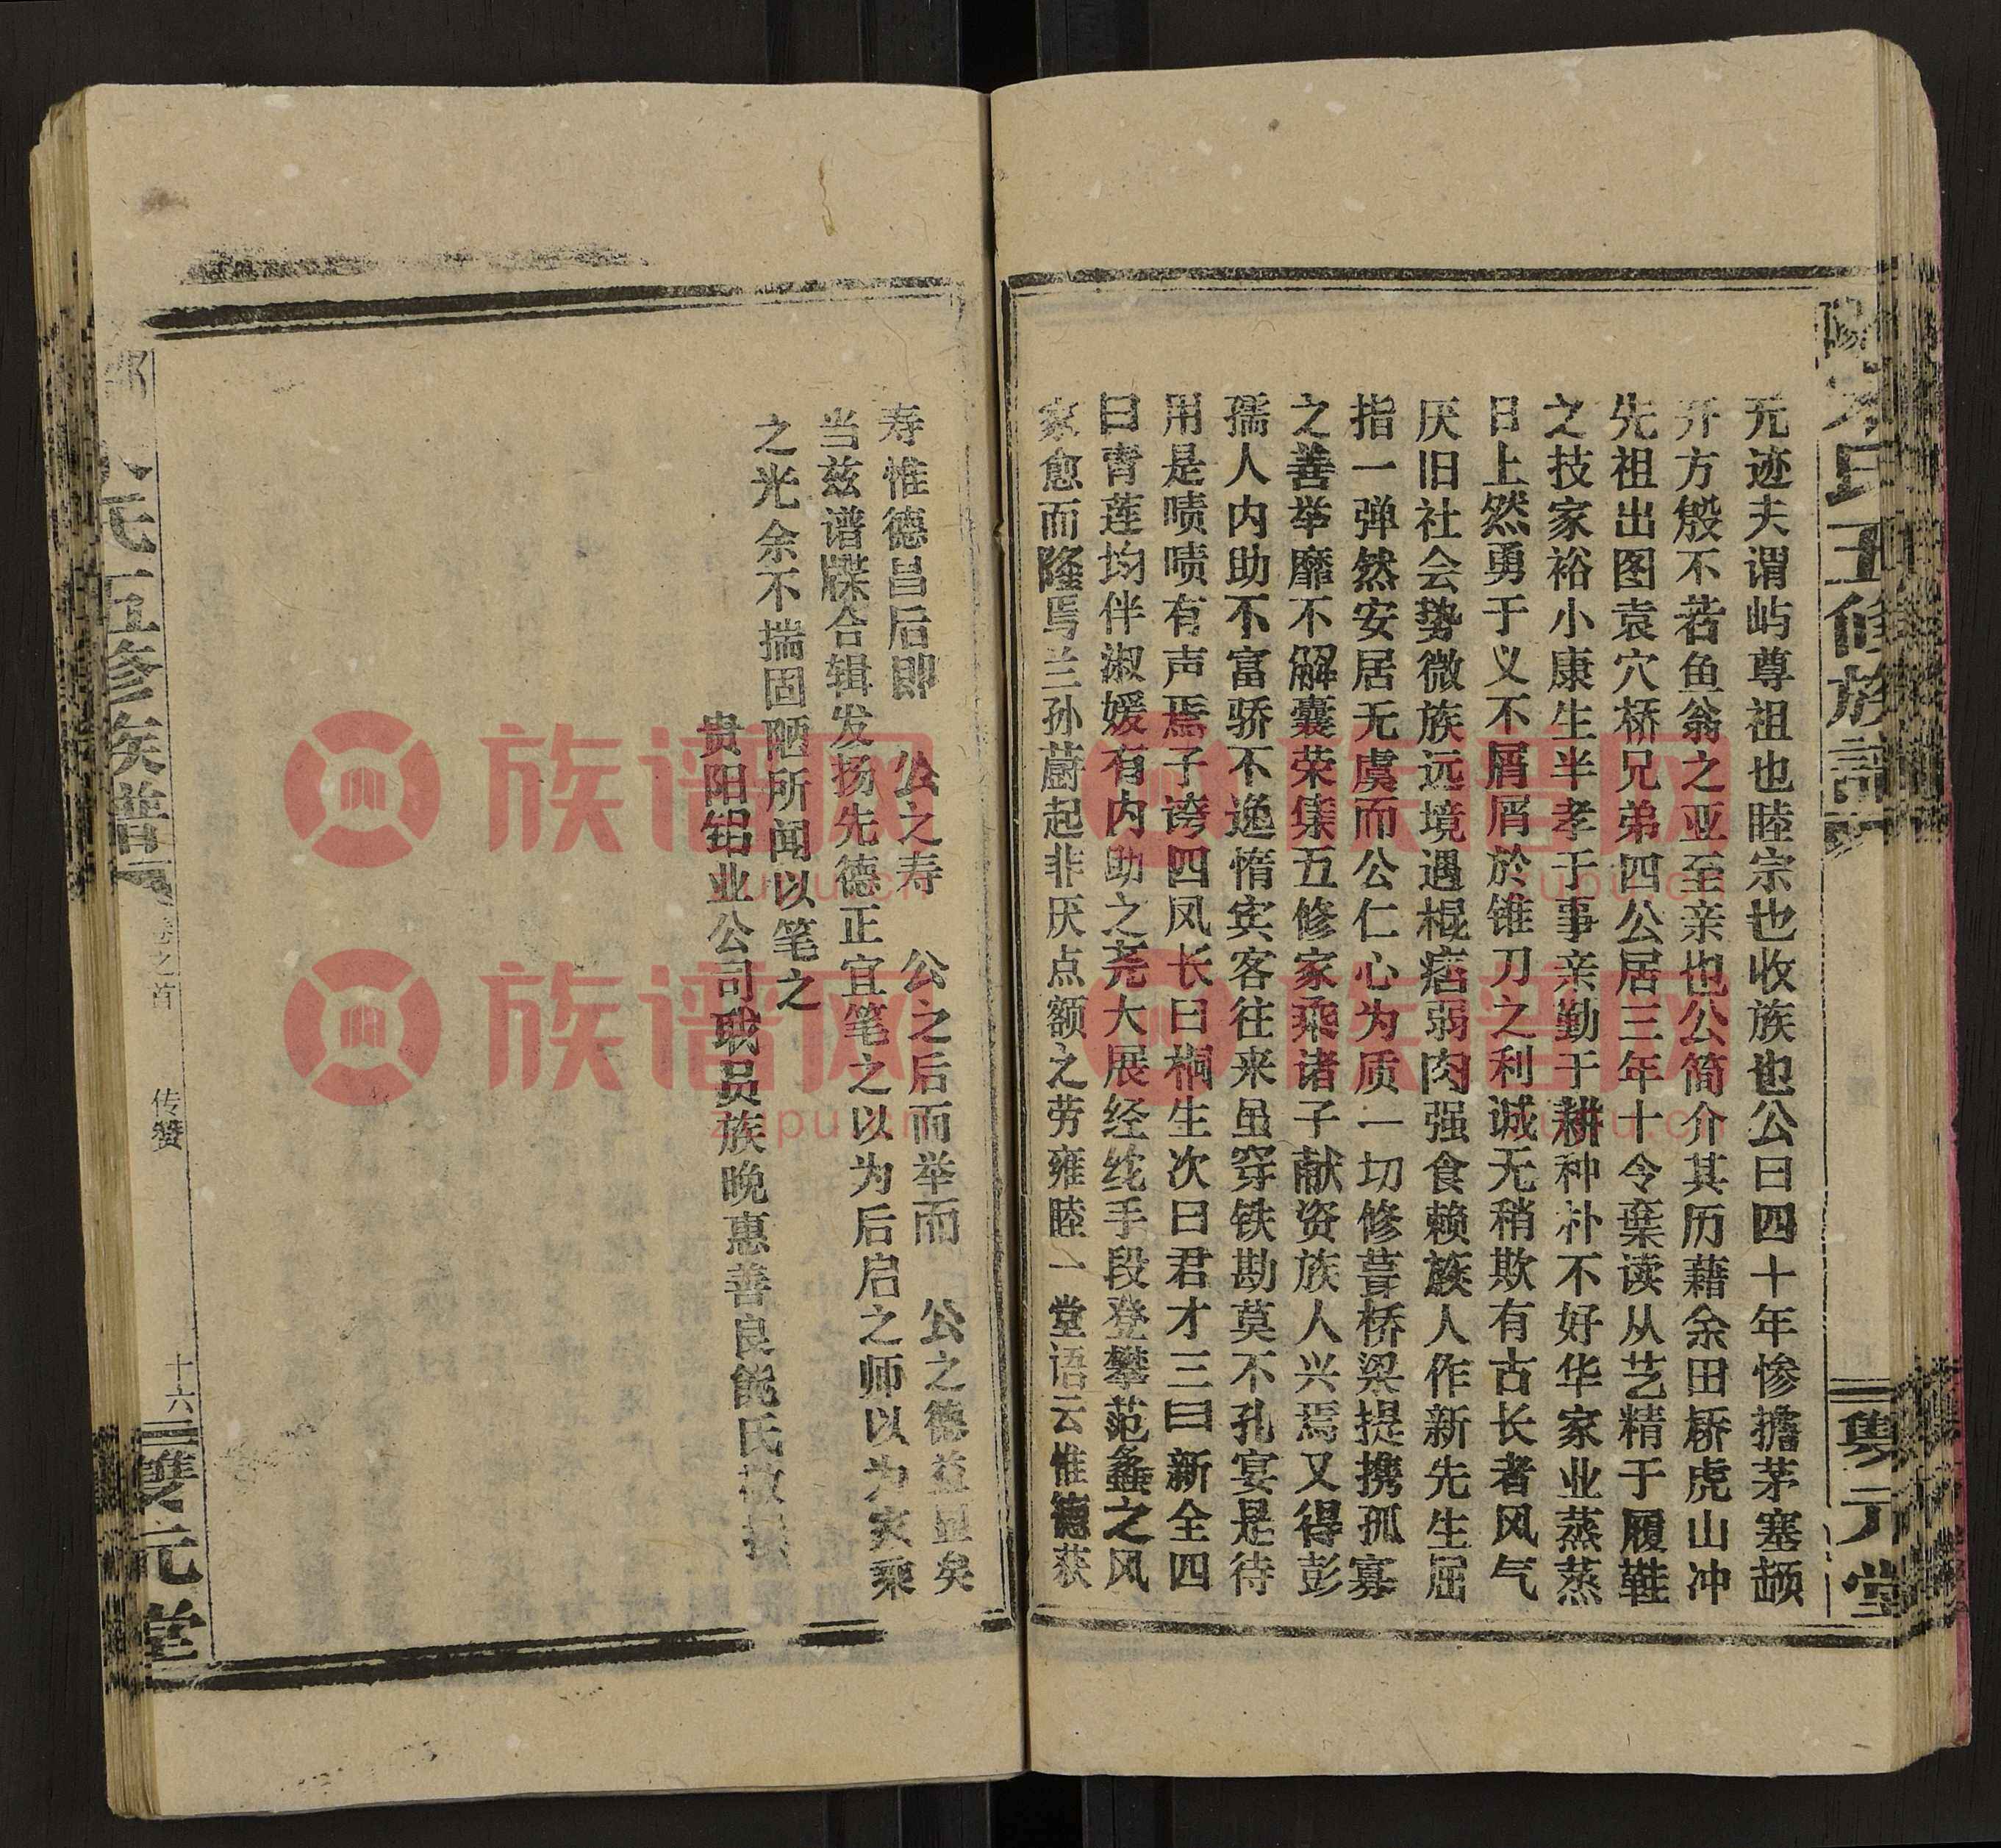 氏五修族谱
元迹夫谓屿尊祖也睦宗也收族也公曰四十年惨擔茅塞颇
开方殷不若鱼翁之亚至亲也公简介其历藉余田桥虎山冲
先祖出图袁穴桥兄弟四公居三年十令棄读从艺精于履鞋
之技家裕小康生半孝于事亲勤于耕种朴不好华家业蒸蒸
日上然勇于义不屑屑於锥刀之利诚无稍欺有古长者风气
厌旧社会势微族远境遇棍痞弱肉强食赖族人作新先生屈
指一弹然安居无虞而公仁心为质一切修葺桥梁提携孤寡
之善举靡不解囊荣集五修家乘诸子献资族人兴焉又得彭
孺人内助不富骄不逸惰宾客往来虽穿铁勘莫不孔宴是待
用是啧啧有声焉子诗四凤长曰桐生次曰君才三曰新全四
曰霄莲均伴淑媛有内助之尧大展经纶手段登攀范蠡之风
家愈而隆焉兰孙蔚起非厌点额之劳雍睦一堂语云惟德获
寿惟德昌后即 公之寿 公之后而举而 公之德益显矣
当兹谱牒合辑发扬先德正宜笔之以为后启之师以为家乘
之光余不揣固陋所闻以笔之
贵阳铝业公司职员族晚惠善良能氏敬撰
氏五修族谱
卷之首
传赞
十六
雙元堂
族谱网
zupu.cn
族谱网
zupu.cn
族谱网
zupu.cn
族谱网
zupu.cn